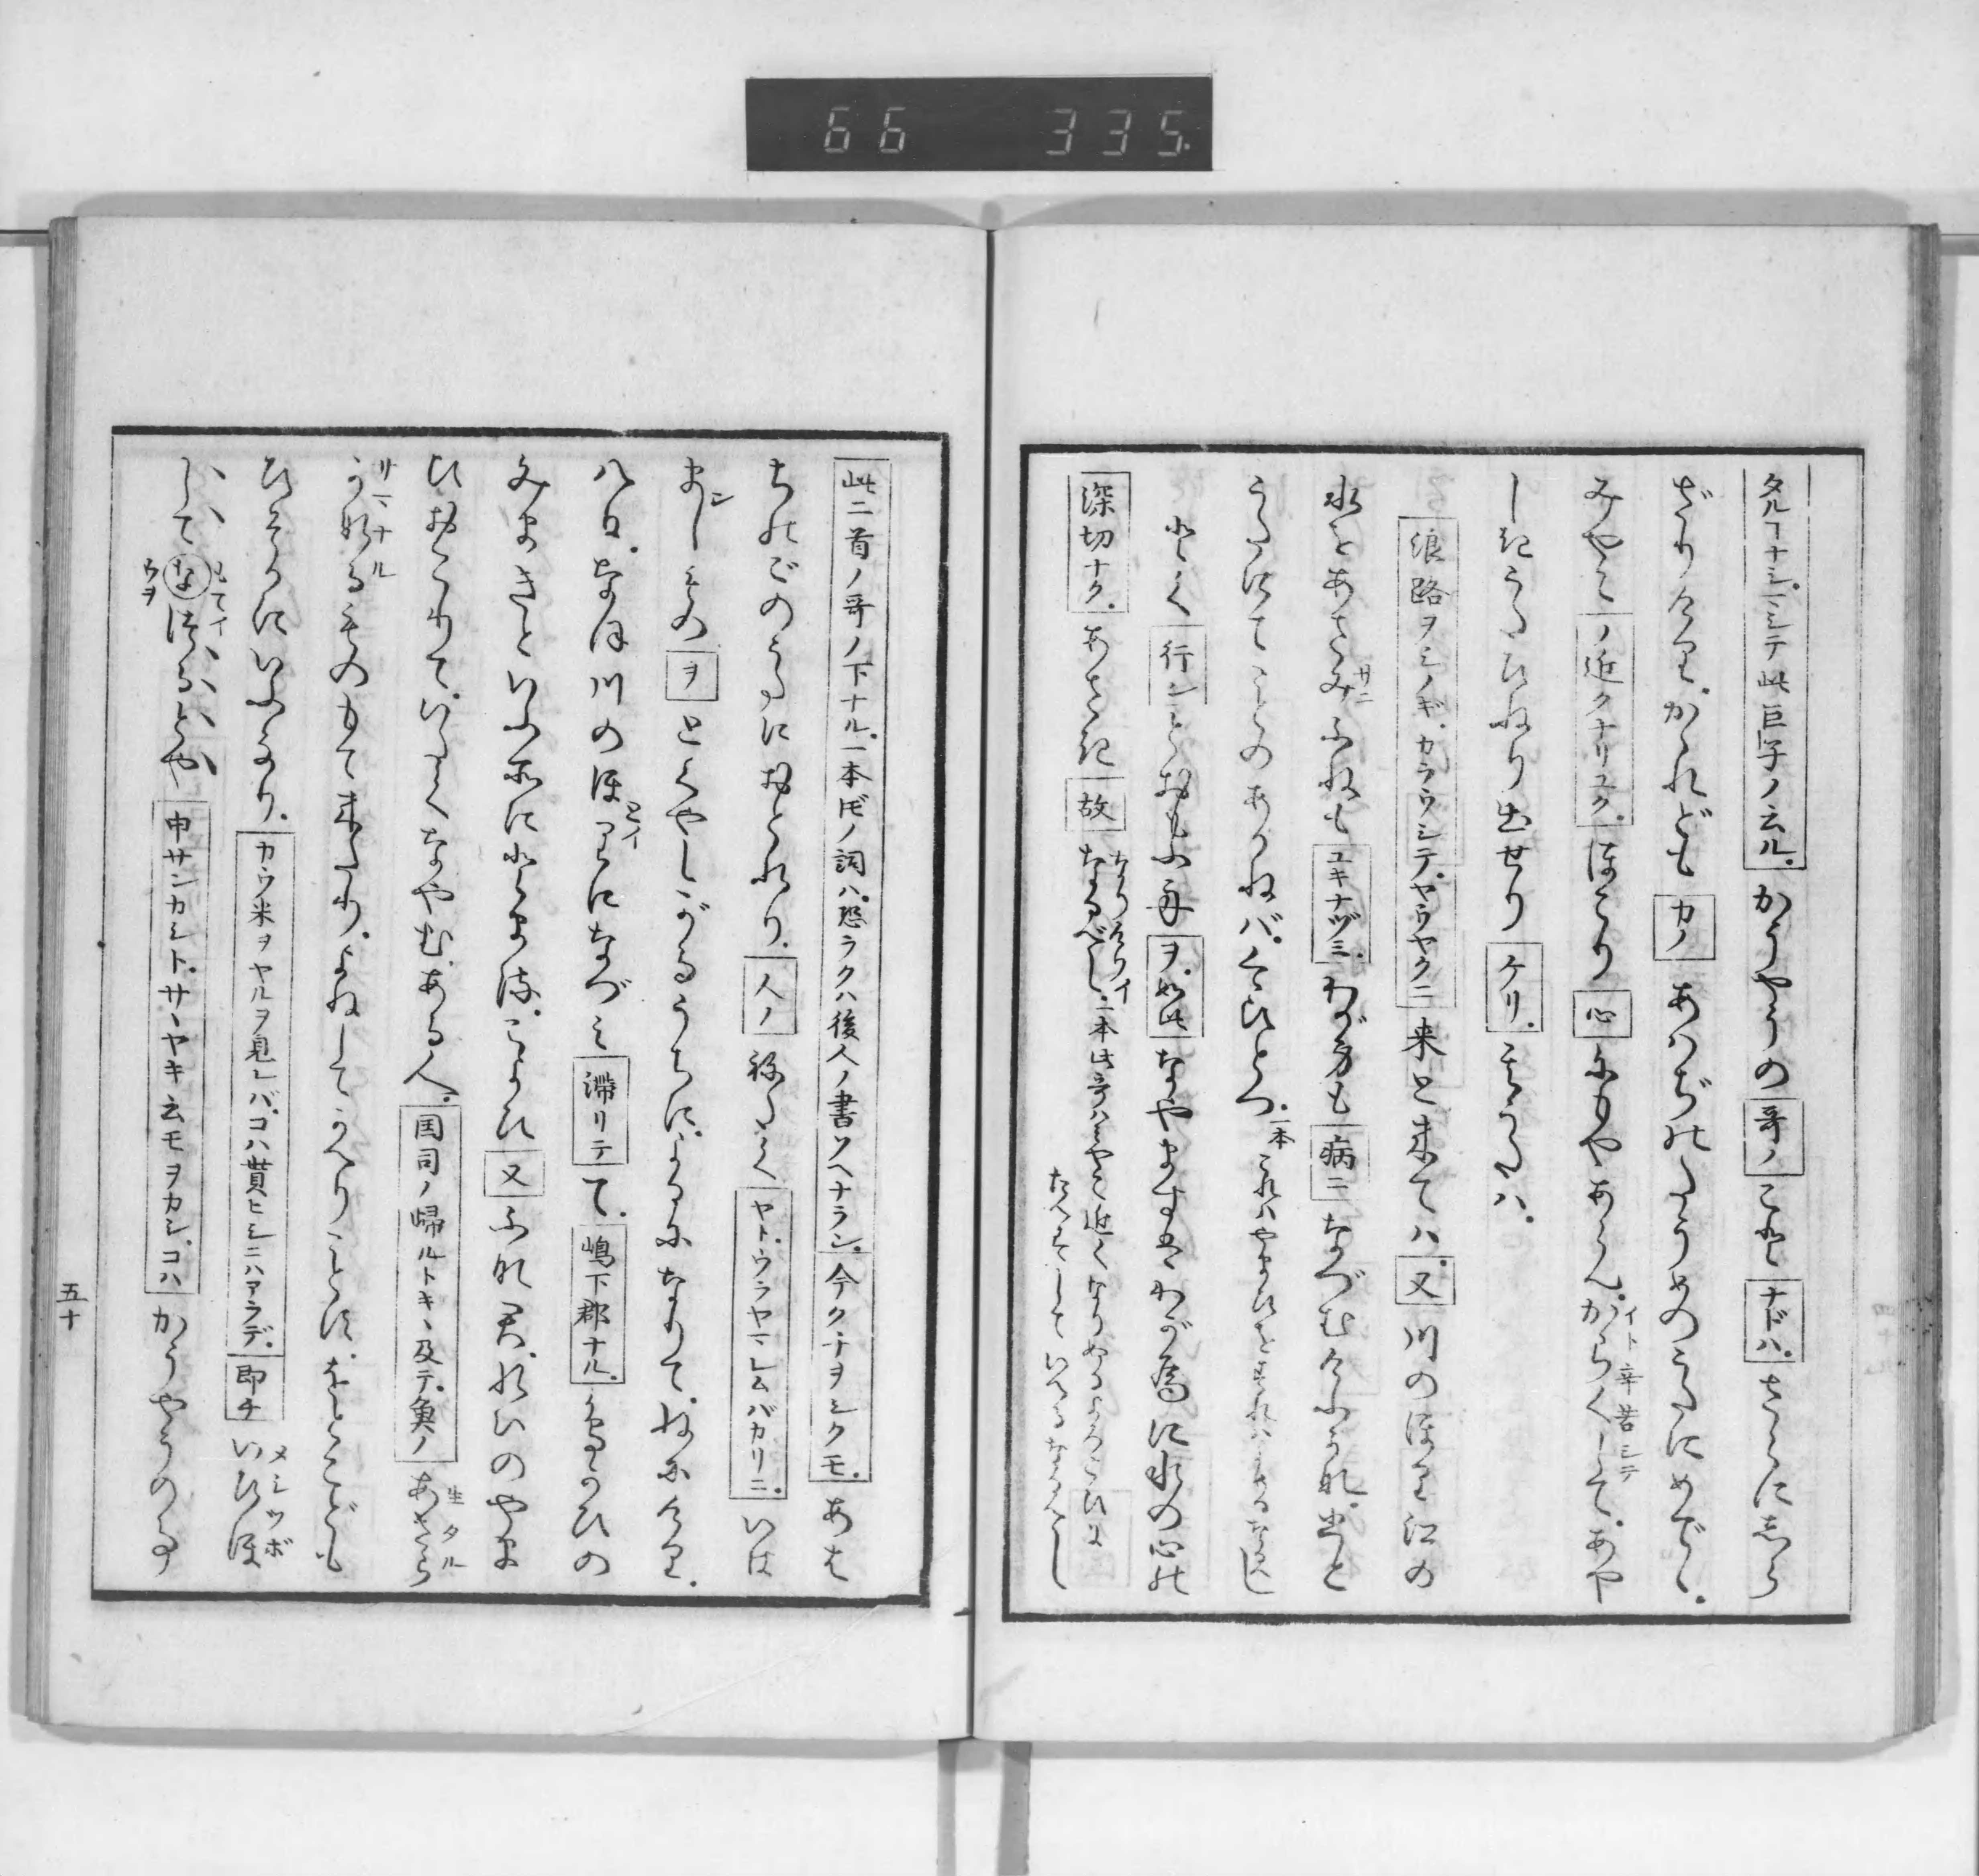 66 335
タルヿナシ。シテ此巨子ノ云ル。かうやうの哥ノこととナドハ。さらにしら
ざりけり。かゝれどもカノあはぢのたうめのうたにめでゝ。
みやこノ近クナリユク。ほこり心にもやあらん。からくして。あや
イト辛苦シテ
しきうたひねり出せりケリ。そのうたハ。
浪路ヲシノギ。カラウシテ。ヤウヤクニ来と来てハ。又川のほり江の
水をあさみふねもユキナヅミ。わが身も病ニなづむけふかな。こと
サニ
うたにてことのあかねバ。今ひとつ。一本
とくと行ントおもふ舟ヲ。如此なやますはわが為に水の心の
深切ナク。あさき故なるべし。一本此哥ハみやこ近くなりぬるよろこびに
なりけりイ
たへずしていへるなるべし
此二首ノ哥ノ下ナル。一本ドモノ詞ハ。恐ラクハ後人ノ書ソヘナラン。今クチヲシクモ。あは
ちのごのうたにおとれり。人ノねたくヤト。ウラヤマレムバカリニ。いは
ましものヲとくやしがるうちに。よるになりて。ねにけり。
ン
八日。なほ川のほりになづみ滞リテて。嶋下郡ナル。鳥かひの
コイ
みまきといふ所にとまる。こよひ又ふな君。れいのやま
ひおこりて。いたくなやむ。ある人。国司ノ帰ルトキヽ及テ。魚ノあざら
生タル
かなるものもて来たり。よねしてかへりことす。をとこども
サヤナル
ひそかにいふなり。カウ米ヲヤルヲ見レバ。コハ貰ヒシニハアラデ。即チいひぼ
メシツボ
してなつるとや申サンカシト。サヽヤキ云モヲカシ。コハかうやうの事
もてイ
ウヲ
五十